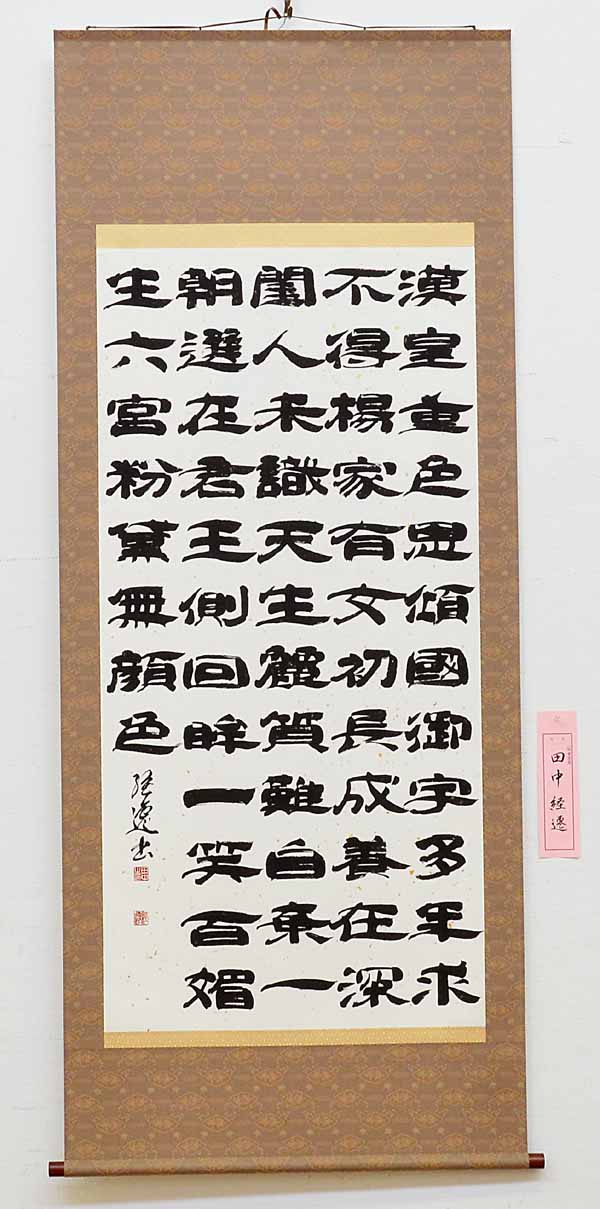 漢皇重色思傾國御宇多年求
不得楊家有女初長成養在深
閨人未識天生麗質難自棄一
朝選在君王側回眸一笑百媚
生六宮粉黛無顔色
経遷書
田中経遷